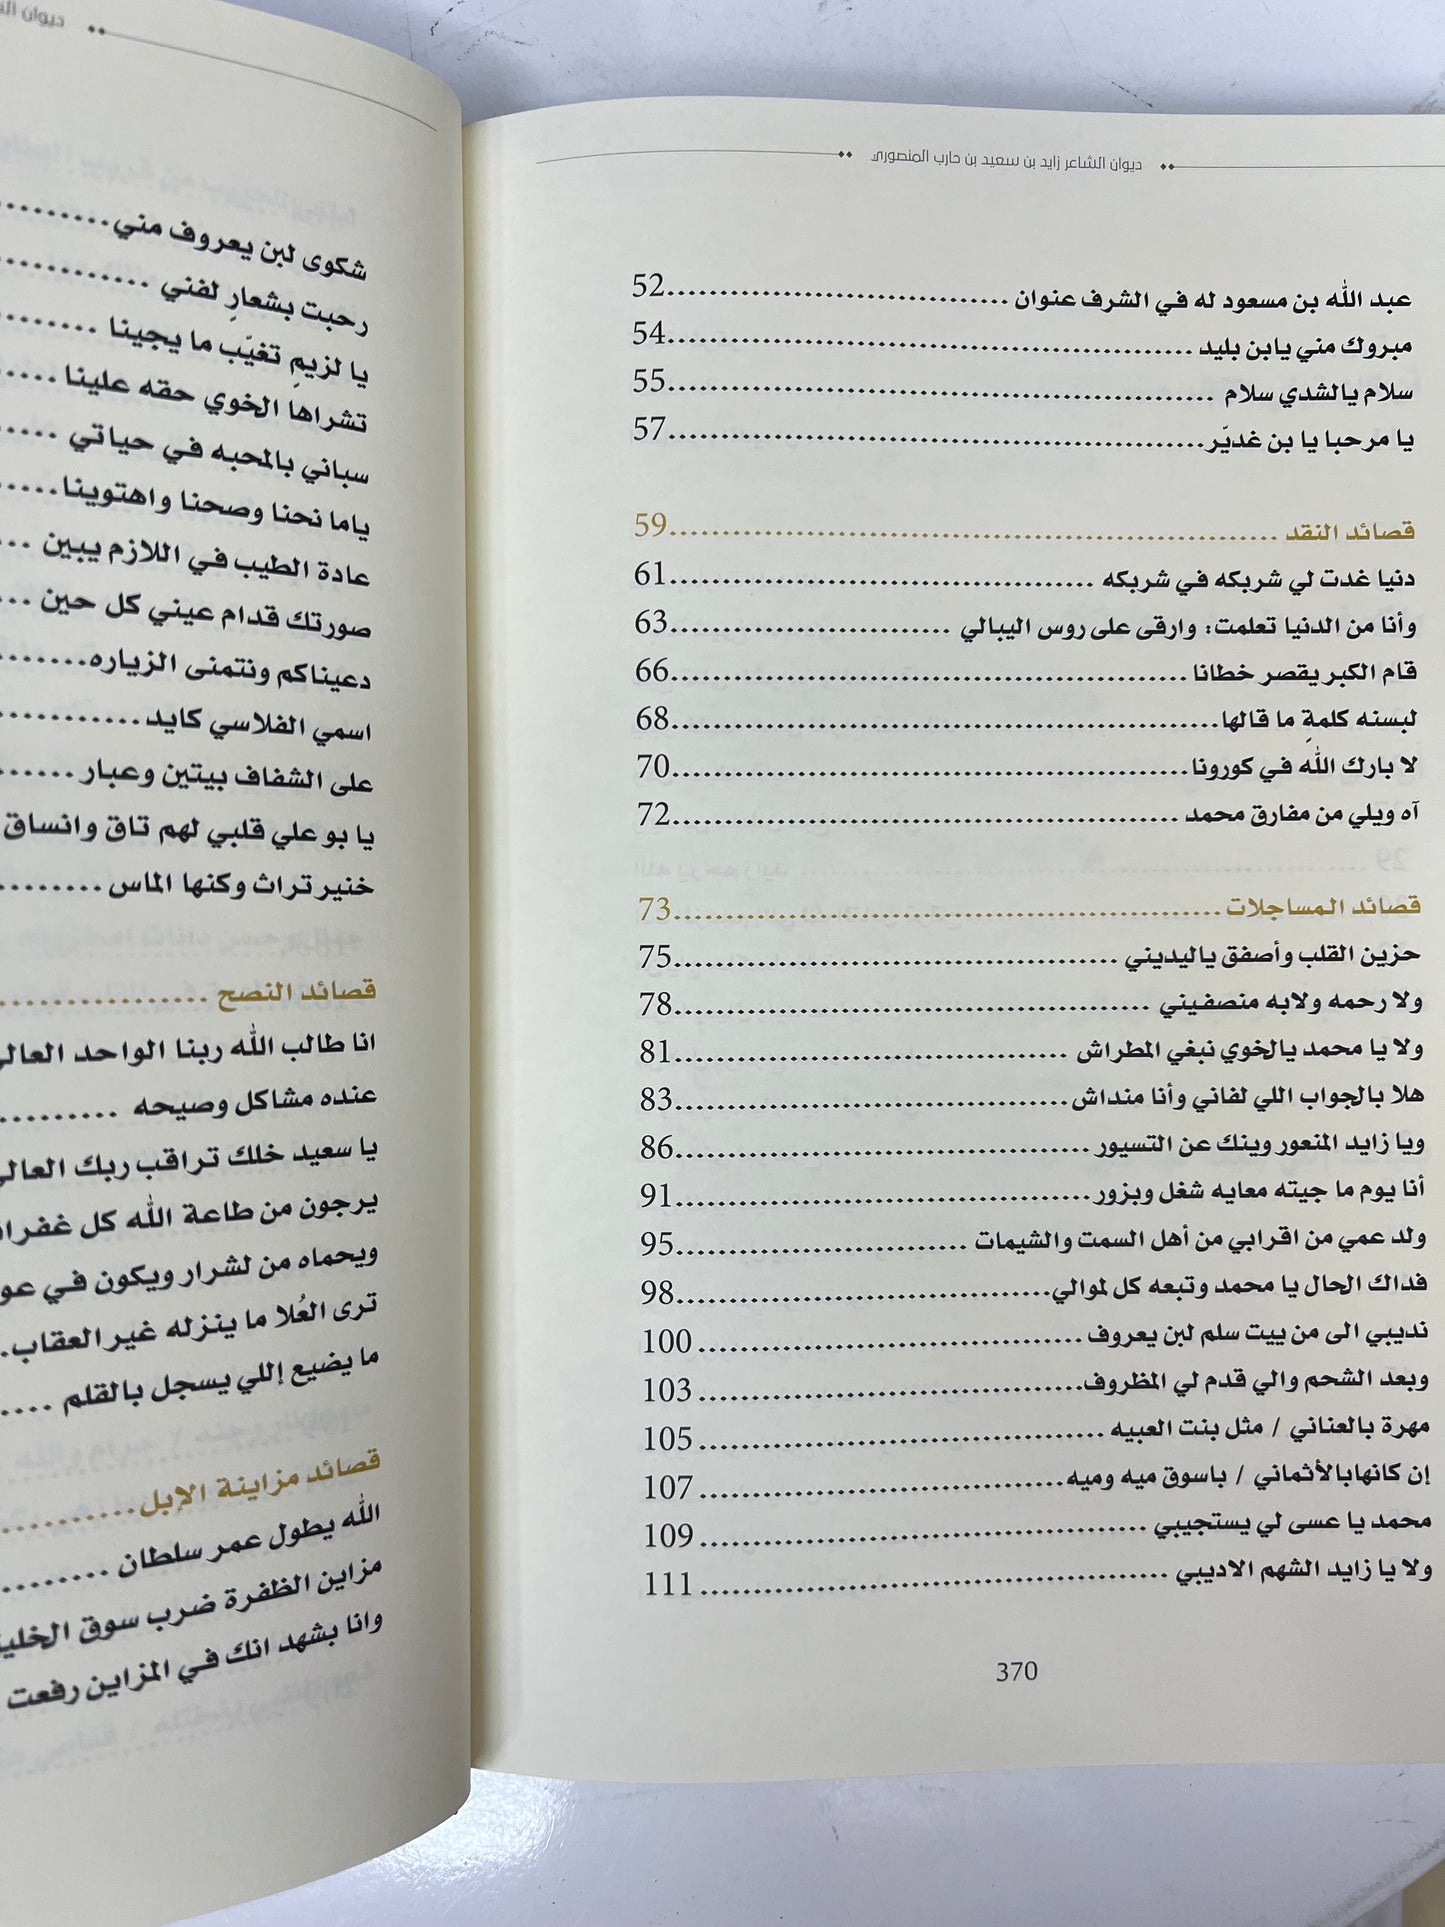 ديوان الشاعر زايد بن سعيد بن حارب المنصوري
عبد الله بن مسعود له في الشرف عنوان ........ 52
مبروك مني يابن بليد ........ 54
سلام يالشدي سلام ........ 55
يا مرحبا يا بن غديّر ........ 57
قصائد النقد ........ 59
دنيا غدت لي شربكه في شربكه ........ 61
وأنا من الدنيا تعلمت؛ وارقى على روس اليبالي ........ 63
قام الكبر يقصر خطانا ........ 66
لبسنه كلمةِ ما قالها ........ 68
لا بارك الله في كورونا ........ 70
آه ويلي من مفارق محمد ........ 72
قصائد المساجلات ........ 73
حزين القلب وأصفق ياليديني ........ 75
ولا رحمه ولابه منصفيني ........ 78
ولا يا محمد يالخوي نبغي المطراش ........ 81
هلا بالجواب اللي لفاني وأنا منداش ........ 83
ويا زايد المنعور وينك عن التسيور ........ 86
أنا يوم ما جيته معايه شغل وبزور ........ 91
ولد عمي من اقرابي من أهل السمت والشيمات ........ 95
فداك الحال يا محمد وتبعه كل لموالي ........ 98
نديبي الى من ييت سلم لبن يعروف ........ 100
وبعد الشحم والي قدم لي المظروف ........ 103
مهرة بالعناني / مثل بنت العبيه ........ 105
إن كانهابالأثماني / باسوق ميه وميه ........ 107
محمد يا عسى لي يستجيبي ........ 109
ولا يا زايد الشهم الاديبي ........ 111
370
ديوان
شكوى لبن يعروف مني ........
رحبت بشعارِ لفني ........
يا لزيمِ تغيّب ما يجينا ........
تشراها الخوي حقه علينا ........
سباني بالمحبه في حياتي ........
ياما نحنا وصحنا واهتوينا ........
عادة الطيب في اللازم يبين ...
صورتك قدام عيني كل حين ...
دعيناكم ونتمنى الزياره ........
اسمي الفلاسي كايد ........
على الشفاف بيتين وعبار ........
يا بو علي قلبي لهم تاق وانساق
خنير تراث وكنها الماس ........
قصائد النصح ........
انا طالب الله ربنا الواحد
عنده مشاكل وصيحه ........
يا سعيد خلك تراقب ربك
يرجون من طاعة الله كل
ويحماه من لشرار ويكون في
ترى العُلا ما ينزله غير العقاب ..
ما يضيع إللي يسجل بالقلم ....
قصائد مزاينة الإبل ........
الله يطول عمر سلطان ........
مزاين الظفرة ضرب سوق
وانا بشهد انك في المزاين رفعت